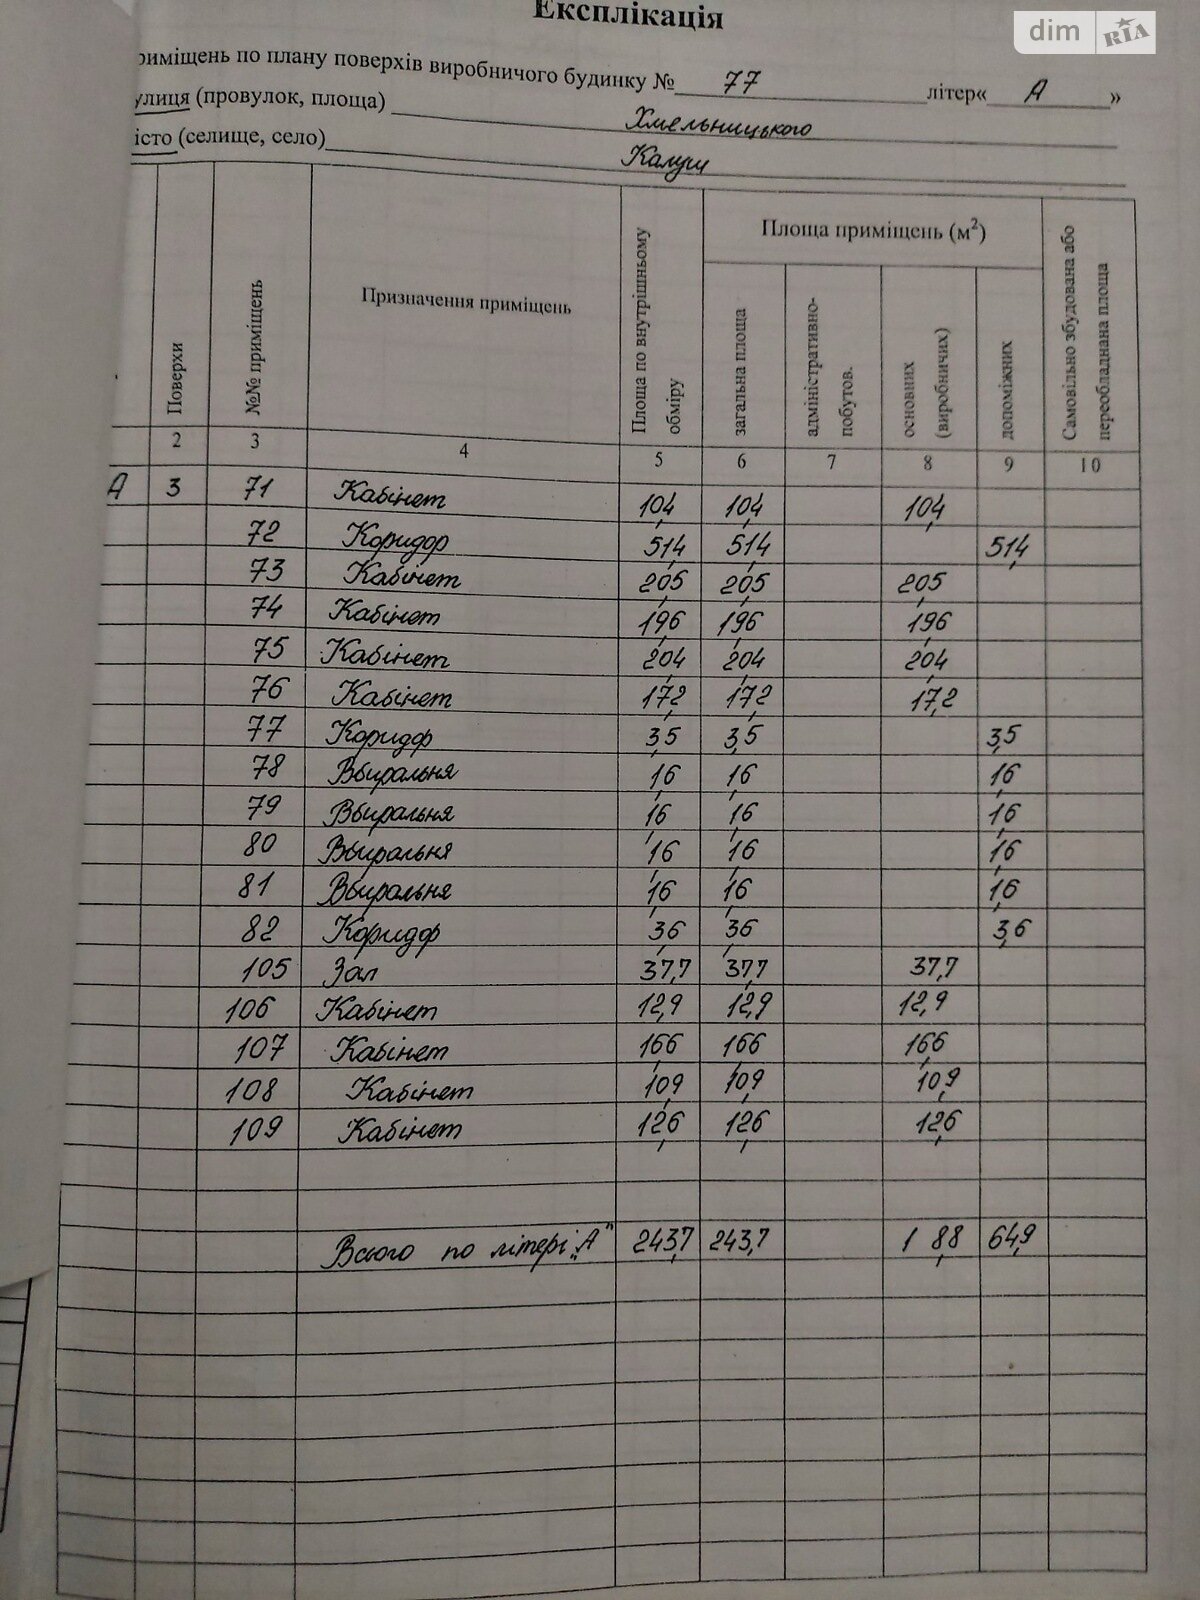 Експлікація
dim RIA
риміщень по плану поверхів виробничого будинку № 77 літер« А »
улиця (провулок, площа) Хмельницького
істо (селище, село) Калуш
Поверхи
№№ приміщень
Призначення приміщень
Площа по внутрішньому обміру
Площа приміщень (м²)
загальна площа
адміністративно-побутов.
основних (виробничих)
допоміжних
Самовільно збудована або переобладнана площа
2 3 4 5 6 7 8 9 10
А 3 71 Кабінет 10,4 10,4 10,4
72 Коридор 51,4 51,4 51,4
73 Кабінет 20,5 20,5 20,5
74 Кабінет 19,6 19,6 19,6
75 Кабінет 20,4 20,4 20,4
76 Кабінет 17,2 17,2 17,2
77 Коридор 3,5 3,5 3,5
78 Вбиральня 1,6 1,6 1,6
79 Вбиральня 1,6 1,6 1,6
80 Вбиральня 1,6 1,6 1,6
81 Вбиральня 1,6 1,6 1,6
82 Коридор 3,6 3,6 3,6
105 Зал 37,7 37,7 37,7
106 Кабінет 12,9 12,9 12,9
107 Кабінет 16,6 16,6 16,6
108 Кабінет 10,9 10,9 10,9
109 Кабінет 12,6 12,6 12,6
Всього по літері „А" 243,7 243,7 178,8 64,9